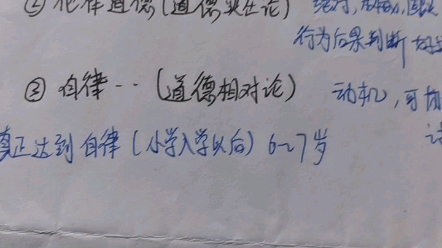 ② 他律道德(道德实在论) 绝对,
行为后果判断
③ 自律··(道德相对论) 动机,可
真正达到自律(小学入学以后)6-7岁